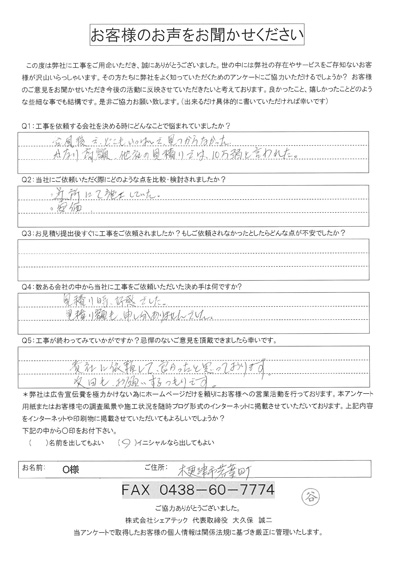 お客様のお声をお聞かせください
この度は弊社に工事をご用命いただき、誠にありがとうございました。世の中には弊社の存在やサービスをご存知ないお客様が沢山いらっしゃいます。その方たちに弊社をよく知っていただくためのアンケートにご協力いただけるでしょうか？ お客様のご意見をお聞かせいただき今後の活動に反映させていただきたいと考えております。良かったこと、嬉しかったことどのような些細な事でも結構です。是非ご協力お願い致します。（出来るだけ具体的に書いていただければ幸いです）
Q1：工事を依頼する会社を決める時にどんなことで悩まれていましたか？
台風後で、どこもいっぱいで、見つからなかった。
他社の見積りでは、10万弱と言われた。
Q2：当社にご依頼いただく際にどのような点を比較・検討されましたか？
・近所にて施工していた。
Q3：お見積り提出後すぐに工事をご依頼されましたか？もしご依頼されなかったとしたらどんな点が不安でしたか？
Q4：数ある会社の中から当社に工事をご依頼いただいた決め手は何ですか？
見積り時、好感でした。
見積り額も、申し分ありませんでした。
Q5：工事が終わってみていかがですか？忌憚のないご意見を頂戴できましたら幸いです。
貴社に依頼して、良かったと思っております。
次回もお願いするつもりです。
＊弊社は広告宣伝費を極力かけない為にホームページだけを頼りにお客様への営業活動を行っております。本アンケート用紙またはお客様宅の調査風景や施工状況を随時ブログ形式のインターネットに掲載させていただいております。上記内容をインターネットや印刷物に掲載させていただいてもよろしいでしょうか？
下記の中から〇印をお付下さい。
（　）名前を出してもよい （〇）イニシャルなら出してもよい
お名前： O様 ご住所： 木更津市若葉町
FAX 0438-60-7774
谷
ご協力ありがとうございました。
株式会社シェアテック 代表取締役 大久保 誠二
当アンケートで取得したお客様の個人情報は関係法規に基づき厳正に管理いたします。